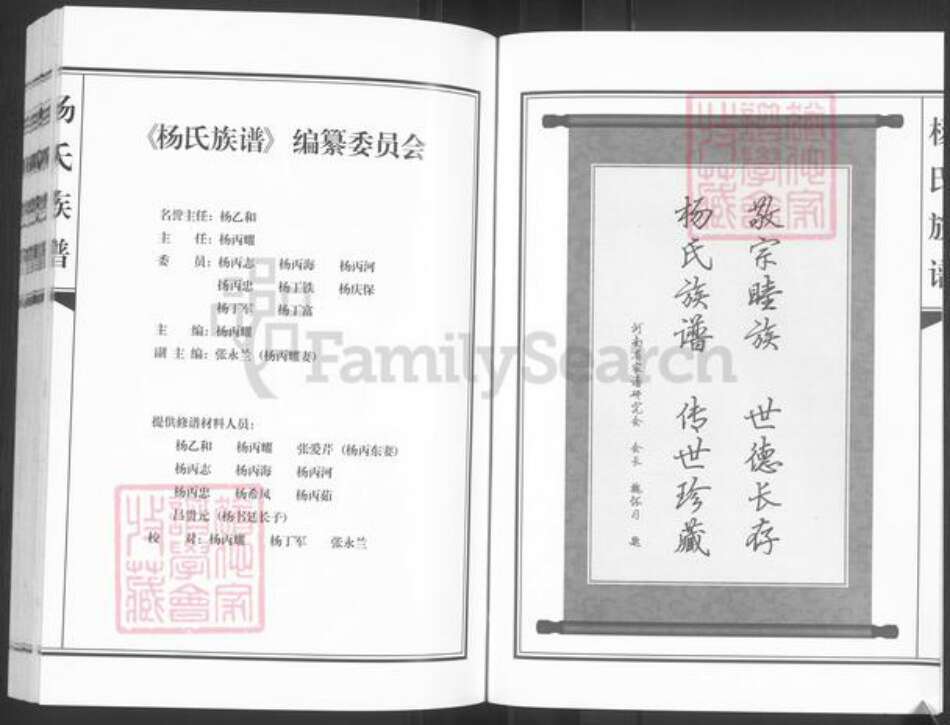 杨氏族谱
《杨氏族谱》 编纂委员会
名誉主任：杨乙和
主　　任：杨丙耀
委　　员：杨丙志　杨丙海　杨丙河
杨丙忠　杨丁铁　杨庆保
杨丁军　杨丁富
主　　编：杨丙耀
副 主 编：张永兰（杨丙耀妻）
提供修谱材料人员：
杨乙和　杨丙耀　张爱芹（杨丙东妻）
杨丙志　杨丙海　杨丙河
杨丙忠　杨希凤　杨丙茹
吕贵元（杨书廷长子）
校　　对：杨丙耀　杨丁军　张永兰
FamilySearch
敬宗睦族　世德长存
杨氏族谱　传世珍藏
河南省家谱研究会 会长 魏怀习 题
杨氏族谱